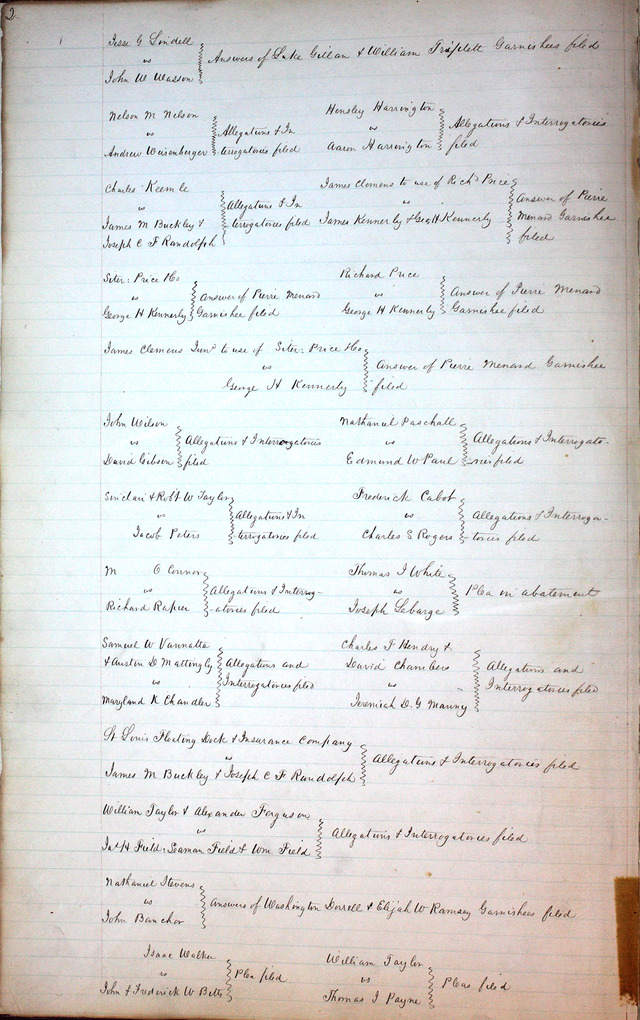 2
Jesse G Lindell
vs
John W Wasson
Answers of Luke Gillan & William Triplett Garnishees filed
Nelson M Nelson
vs
Andrew Weisenberger
Allegations & In
terrogatories filed
Hensley Harrington
vs
Aaron Harrington
Allegations & Interrogatories
filed
Charles Keemle
vs
James M Buckley &
Joseph C F Randolph
Allegations & In
terrogatories filed
James Clemens to use of Richd Price
vs
James Kennerly & Geo H Kennerly
Answer of Pierre
Menard Garnishee
filed
Siter: Price & Co
vs
George H Kennerly
Answer of Pierre Menard
Garnishee filed
Richard Price
vs
George H Kennerly
Answer of Pierre Menard
Garnishee filed
James Clemens Junr to use of Siter: Price & Co
vs
George H Kennerly
Answer of Pierre Menard Garnishee
filed
John Wilson
vs
David Gibson
Allegations & Interrogatories
filed
Nathaniel Paschall
vs
Edmund W Paul
Allegations & Interrogato-
-ries filed
Sinclair & Robt W Taylor
vs
Jacob Peters
Allegations & In
terrogatories filed
Frederick Cabot
vs
Charles S Rogers
Allegations & Interroga-
-tories filed
M O Connor
vs
Richard Rapier
Allegations & Interrog-
-atories filed
Thomas J White
vs
Joseph Lebarge
Plea in abatement
Samuel W Vannatta
& Austin D Mattingly
vs
Maryland K Chandler
Allegations and
Interrogatories filed
Charles F Hendry &
David Chambers
vs
Jeremiah D. G Manny
Allegations and
Interrogatories filed
St Louis Floating Dock & Insurance Company
vs
James M Buckley & Joseph C F Randolph
Allegations & Interrogatories filed
William Taylor & Alexander Ferguson
vs
Jas H Field: Seaman Field & Wm Field
Allegations & Interrogatories filed
Nathaniel Stevens
vs
John Banchor
Answers of Washington Dorrell & Elijah W Ramsey Garnishees filed
Isaac Walker
vs
John & Frederick W Betts
Plea filed
William Taylor
vs
Thomas J Payne
Pleas filed